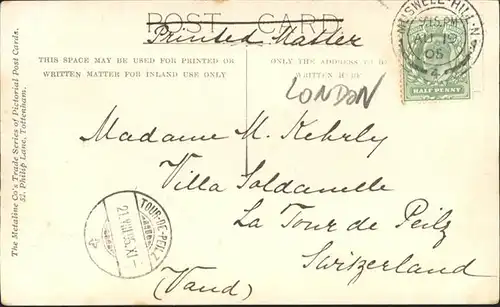 POST CARD
Printed Matter
THIS SPACE MAY BE USED FOR PRINTED OR
WRITTEN MATTER FOR INLAND USE ONLY
ONLY THE ADDRESS TO BE
WRITTEN HERE
MUSWELL-HILL-N
7.15 PM
AU 19
05
HALF PENNY
LONDON
Madame M. Kehrly
Villa Soldanelle
La Tour de Peilz
Switzerland
(Vaud)
TOUR-DE-PEILZ
21.VIII.05.XI-
The Metaline Co's Trade Series of Pictorial Post Cards.
52, Philip Lane, Tottenham.